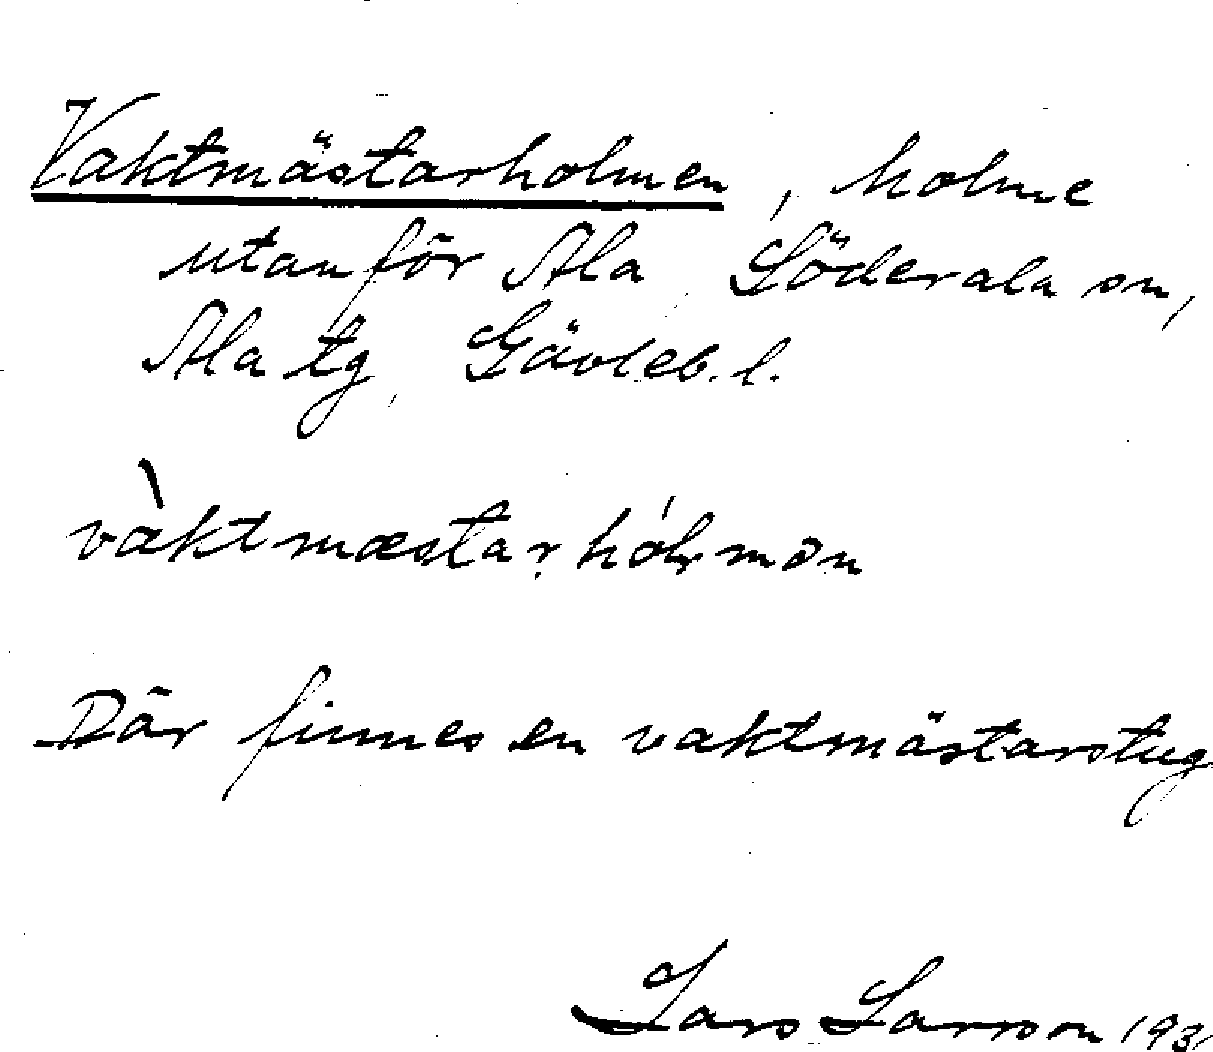 Vaktmästarholmen, holme
utanför Ala, Söderala sn,
Ala tg, Gävleb. l.
vàktmæstarhólmən
Där finnes en vaktmästarstug
Lars Larsson 193